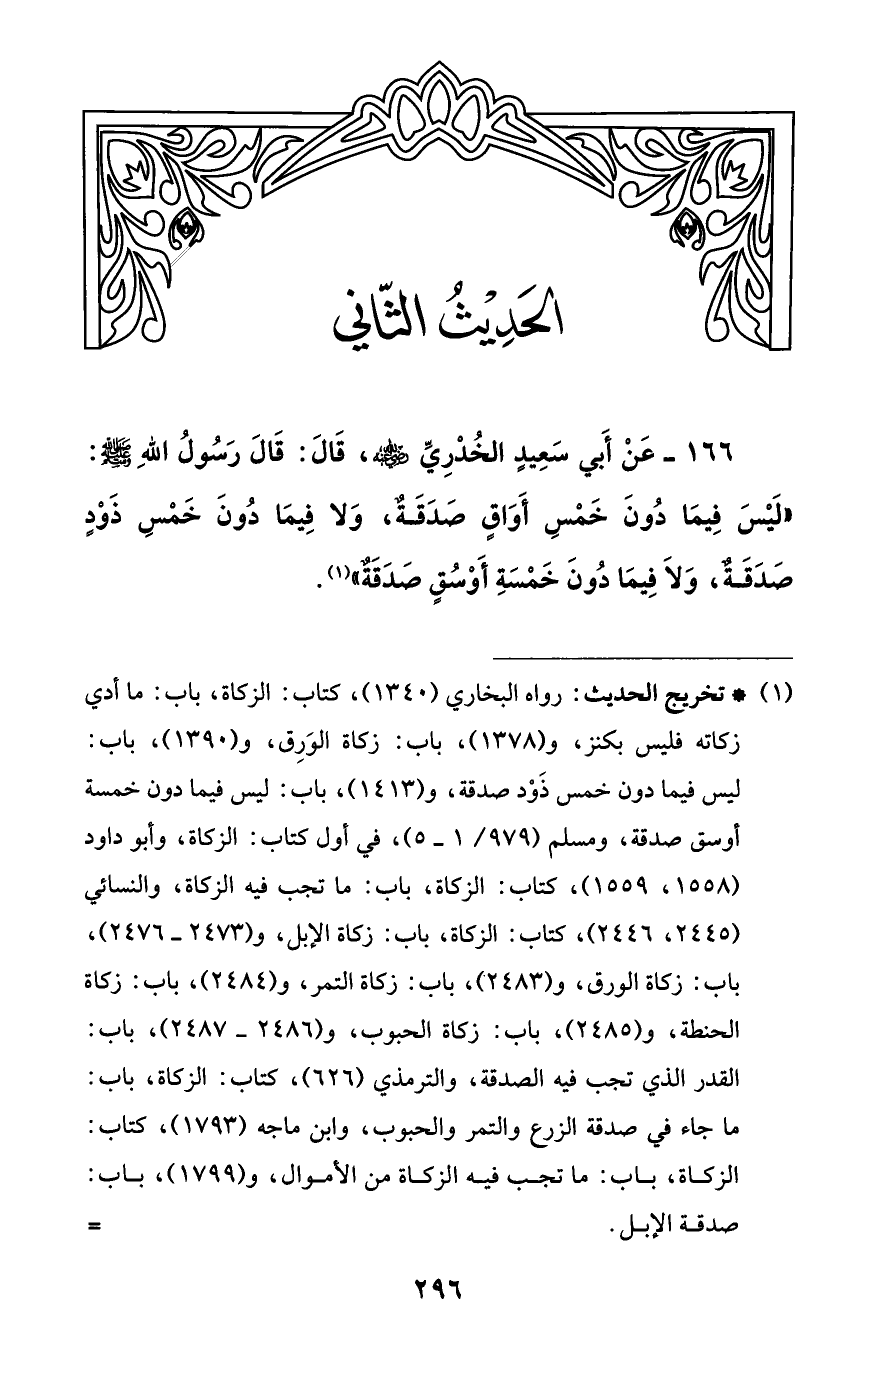 الحَدِيْثُ الثَّانِي
١٦٦ ـ عَنْ أَبي سَعِيدٍ الخُدْرِيِّ ﵁، قَالَ: قَالَ رَسُولُ اللهِ ﷺ:
«لَيْسَ فِيمَا دُونَ خَمْسِ أَوَاقٍ صَدَقَةٌ، وَلا فِيمَا دُونَ خَمْسِ ذَوْدٍ
صَدَقَةٌ، وَلاَ فِيمَا دُونَ خَمْسَةِ أَوْسُقٍ صَدَقَةٌ»(١).
(١) * تخريج الحديث: رواه البخاري (١٣٤٠)، كتاب: الزكاة، باب: ما أدي
زكاته فليس بكنز، و(١٣٧٨)، باب: زكاة الوَرِق، و(١٣٩٠)، باب:
ليس فيما دون خمس ذَوْد صدقة، و(١٤١٣)، باب: ليس فيما دون خمسة
أوسق صدقة، ومسلم (٩٧٩/ ١ ـ ٥)، في أول كتاب: الزكاة، وأبو داود
(١٥٥٨، ١٥٥٩)، كتاب: الزكاة، باب: ما تجب فيه الزكاة، والنسائي
(٢٤٤٥، ٢٤٤٦)، كتاب: الزكاة، باب: زكاة الإبل، و(٢٤٧٣ ـ ٢٤٧٦)،
باب: زكاة الورق، و(٢٤٨٣)، باب: زكاة التمر، و(٢٤٨٤)، باب: زكاة
الحنطة، و(٢٤٨٥)، باب: زكاة الحبوب، و(٢٤٨٦ ـ ٢٤٨٧)، باب:
القدر الذي تجب فيه الصدقة، والترمذي (٦٢٦)، كتاب: الزكاة، باب:
ما جاء في صدقة الزرع والتمر والحبوب، وابن ماجه (١٧٩٣)، كتاب:
الزكاة، باب: ما تجب فيه الزكاة من الأموال، و(١٧٩٩)، باب:
صدقة الإبل. =
٢٩٦